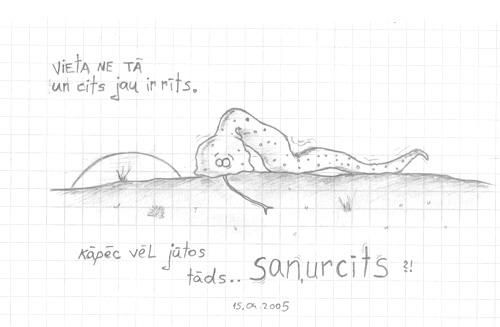 VIETA NE TĀ
un cits jau ir rīts.
kāpēc vēl jūtos
tāds.. saņurcīts ?!
15.04.2005